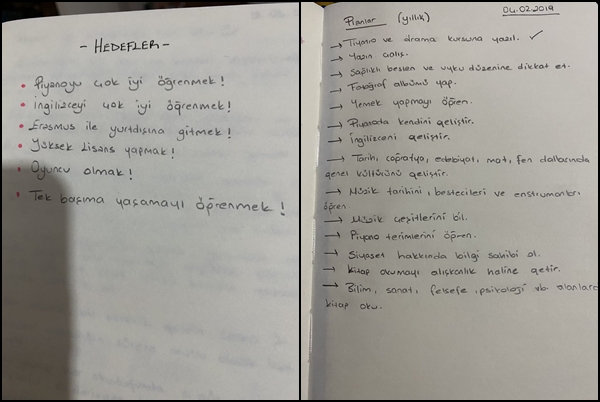 - HEDEFLER -
• Piyanoyu çok iyi öğrenmek!
• İngilizceyi çok iyi öğrenmek!
• Erasmus ile yurtdışına gitmek!
• Yüksek lisans yapmak!
• Oyuncu olmak!
• Tek başıma yaşamayı öğrenmek!
04.02.2019
Planlar (yıllık)
→ Tiyatro ve drama kursuna yazıl. ✓
→ Yazın çalış.
→ Sağlıklı beslen ve uyku düzenine dikkat et.
→ Fotoğraf albümü yap.
→ Yemek yapmayı öğren.
→ Piyanoda kendini geliştir.
→ İngilizceni geliştir.
→ Tarih, coğrafya, edebiyat, mat, fen dallarında
genel kültürünü geliştir.
→ Müzik tarihini, bestecileri ve enstrumanları
öğren.
→ Müzik çeşitlerini bil.
→ Piyano terimlerini öğren.
→ Siyaset hakkında bilgi sahibi ol.
→ Kitap okumayı alışkanlık haline getir.
→ Bilim, sanat, felsefe, psikoloji vb. alanlarda
kitap oku.